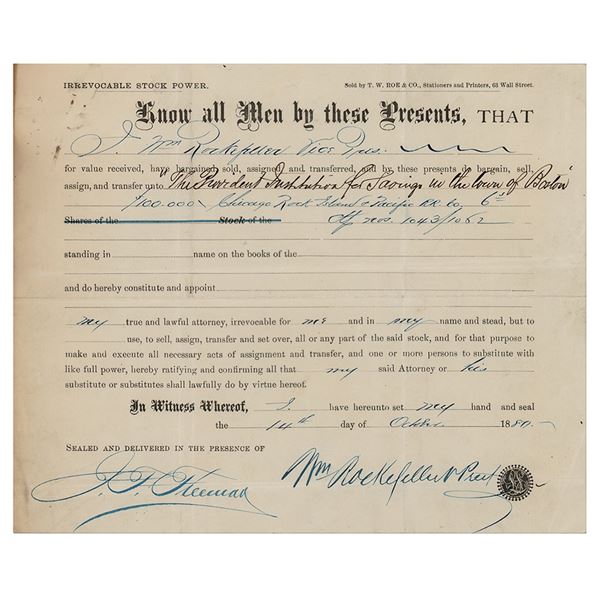 IRREVOCABLE STOCK POWER. Sold by T. W. ROE & CO., Stationers and Printers, 63 Wall Street.
Know all Men by these Presents, THAT
I Wm Rockefeller Vice Pres.
for value received, have bargained, sold, assigned and transferred, and by these presents do bargain, sell,
assign, and transfer unto "The Provident Institution for Savings in the town of Boston"
$100.000 Chicago Rock Island & Pacific RR Co. 6s
Shares of the Stock of the Ctf nos. 1043/1062
standing in name on the books of the
and do hereby constitute and appoint
my true and lawful attorney, irrevocable for me and in my name and stead, but to
use, to sell, assign, transfer and set over, all or any part of the said stock, and for that purpose to
make and execute all necessary acts of assignment and transfer, and one or more persons to substitute with
like full power, hereby ratifying and confirming all that my said Attorney or his
substitute or substitutes shall lawfully do by virtue hereof.
In Witness Whereof, I have hereunto set my hand and seal
the 14th day of October 188
SEALED AND DELIVERED IN THE PRESENCE OF
Wm Rockefeller V Prest
Freeman